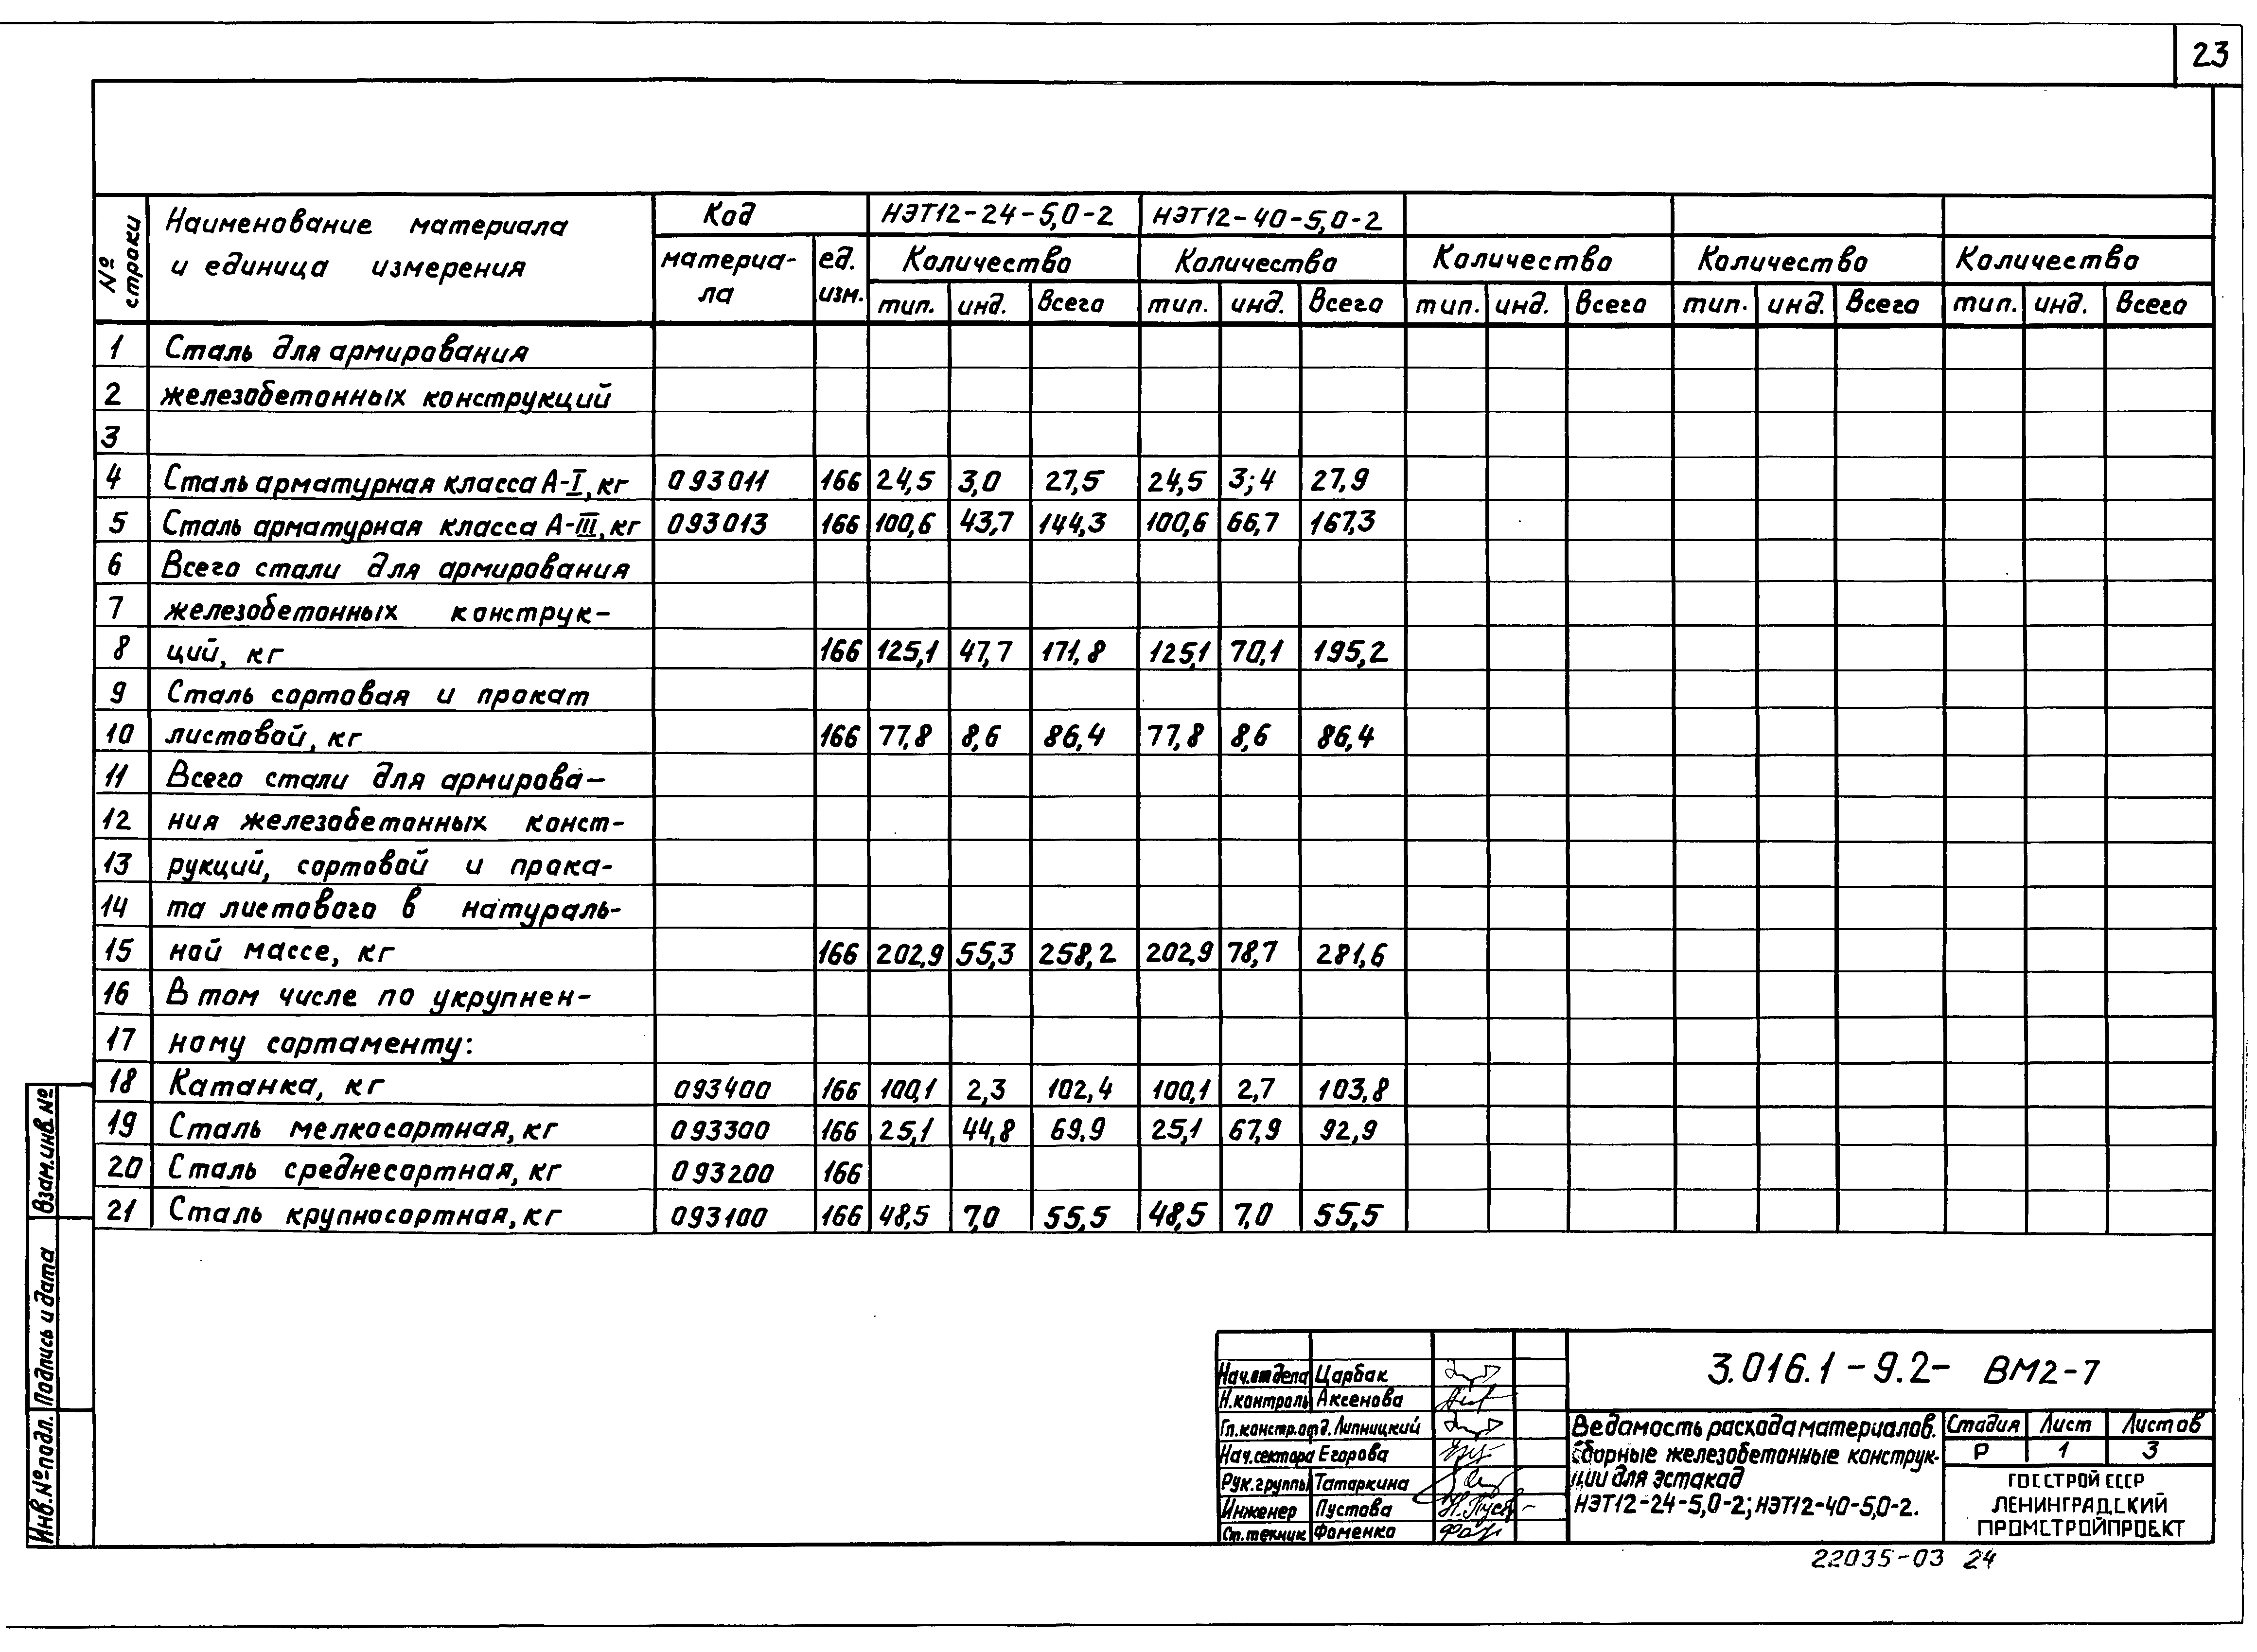 23
№ строки
Наименование материала и единица измерения
Код
НЭТ12-24-5,0-2
НЭТ12-40-5,0-2
материа-ла
ед. изм.
Количество
Количество
Количество
Количество
Количество
тип. инд. Всего тип. инд. Всего тип. инд. Всего тип. инд. Всего тип. инд. Всего
1 Сталь для армирования
2 железобетонных конструкций
3
4 Сталь арматурная класса А-I, кг 093011 166 24,5 3,0 27,5 24,5 3;4 27,9
5 Сталь арматурная класса А-III, кг 093013 166 100,6 43,7 144,3 100,6 66,7 167,3
6 Всего стали для армирования
7 железобетонных конструк-
8 ций, кг 166 125,1 47,7 171,8 125,1 70,1 195,2
9 Сталь сортовая и прокат
10 листовой, кг 166 77,8 8,6 86,4 77,8 8,6 86,4
11 Всего стали для армирова-
12 ния железобетонных конст-
13 рукций, сортовой и прока-
14 та листового в натураль-
15 ной массе, кг 166 202,9 55,3 258,2 202,9 78,7 281,6
16 В том числе по укрупнен-
17 ному сортаменту:
18 Катанка, кг 093400 166 100,1 2,3 102,4 100,1 2,7 103,8
19 Сталь мелкосортная, кг 093300 166 25,1 44,8 69,9 25,1 67,9 92,9
20 Сталь среднесортная, кг 093200 166
21 Сталь крупносортная, кг 093100 166 48,5 7,0 55,5 48,5 7,0 55,5
Взам.инв.№
Подпись и дата
Инв.№подл.
Нач.отдела Царбак
Н.контроль Аксенова
Гл.констр.отд. Липницкий
Нач.сектора Егорова
Рук.группы Татаркина
Инженер Пустова
Ст.техник Фоменко
3.016.1-9.2- ВМ2-7
Ведомость расхода материалов.
Сборные железобетонные конструк-
ции для эстакад
НЭТ12-24-5,0-2; НЭТ12-40-5,0-2.
Стадия Лист Листов
Р 1 3
ГОССТРОЙ СССР
ЛЕНИНГРАДСКИЙ
ПРОМСТРОЙПРОЕКТ
22035-03 24